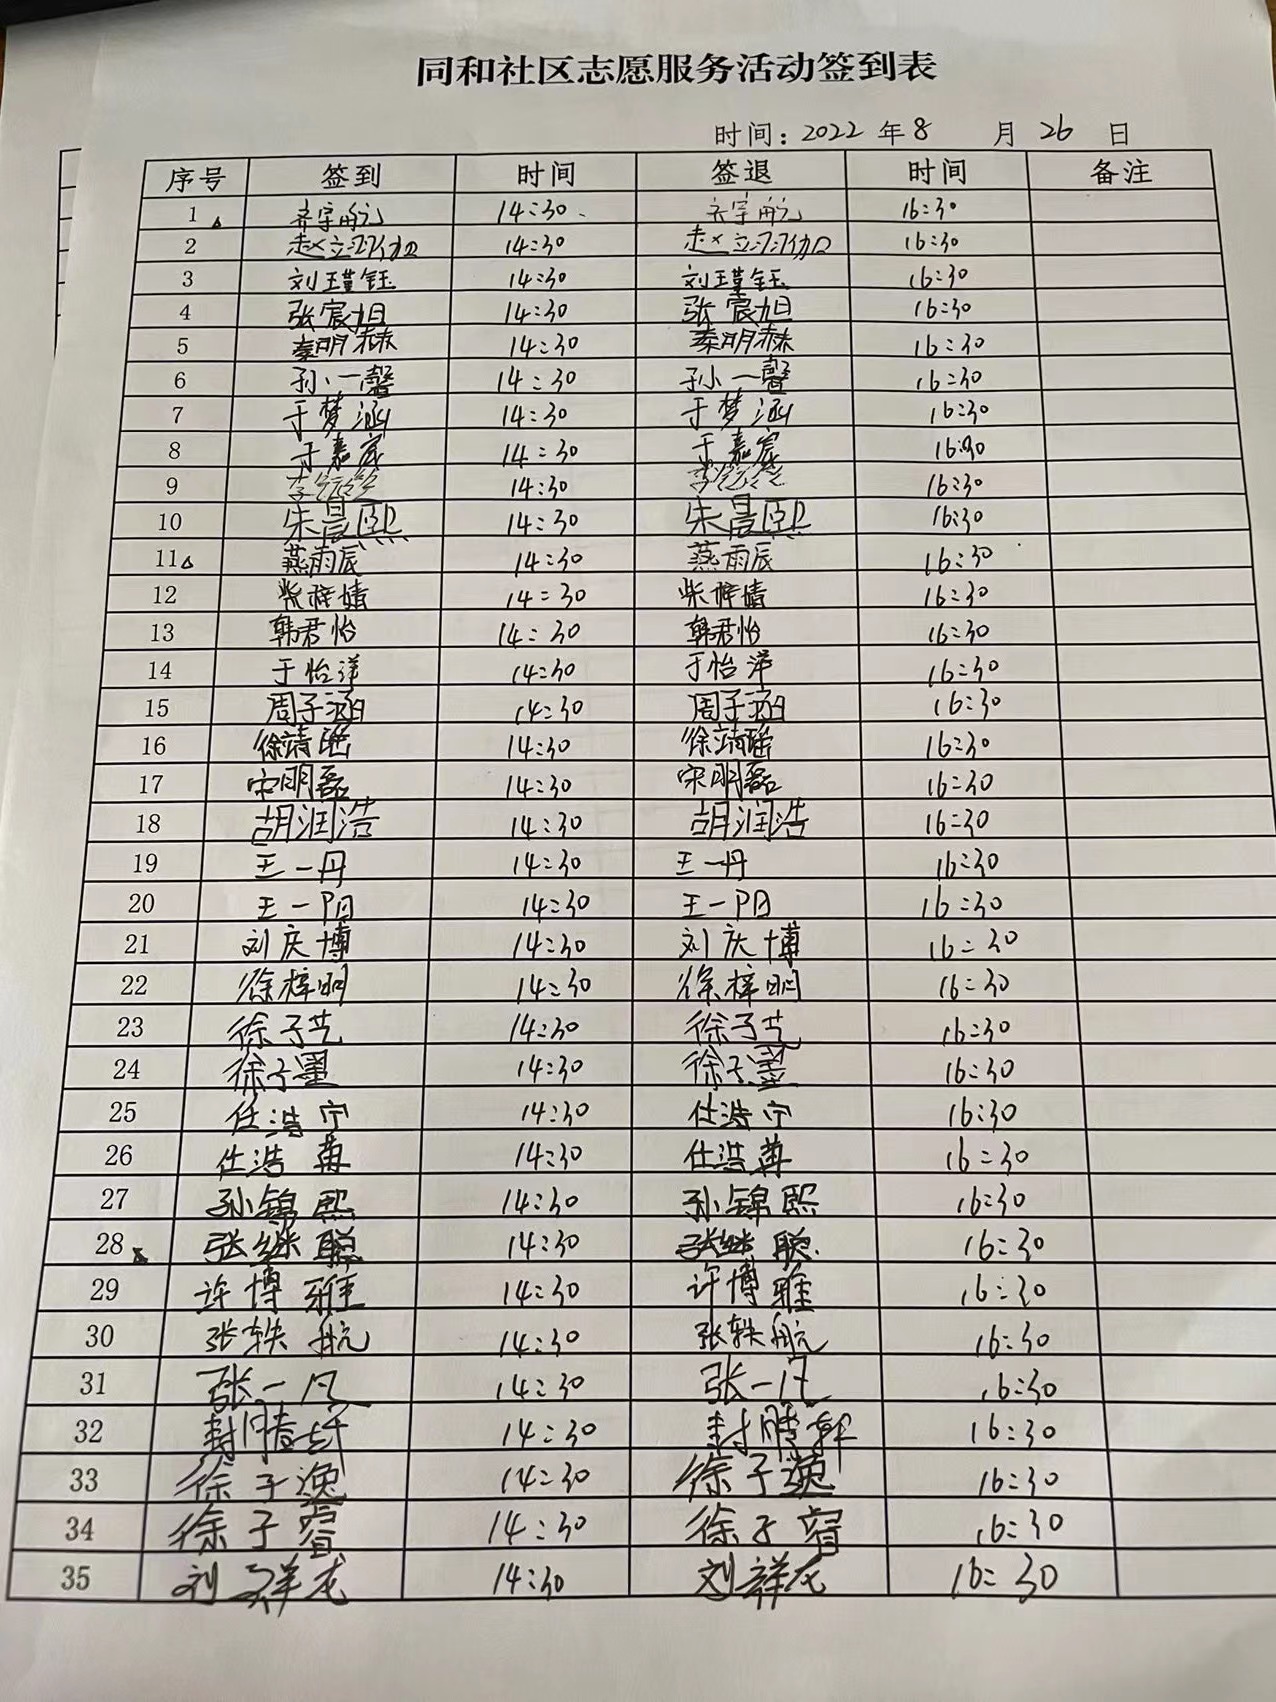 同和社区志愿服务活动签到表
时间：2022 年 8 月 26 日
序号 签到 时间 签退 时间 备注
1 齐宇航 14:30 齐宇航 16:30
2 赵 14:30 赵 16:30
3 刘瑾钰 14:30 刘瑾钰 16:30
4 张宸旭 14:30 张宸旭 16:30
5 秦明赫 14:30 秦明赫 16:30
6 孙一馨 14:30 孙一馨 16:30
7 于梦涵 14:30 于梦涵 16:30
8 于嘉宸 14:30 于嘉宸 16:30
9 李 14:30 李 16:30
10 朱晨熙 14:30 朱晨熙 16:30
11 燕雨辰 14:30 燕雨辰 16:30
12 柴梓婧 14:30 柴梓婧 16:30
13 韩君怡 14:30 韩君怡 16:30
14 于怡洋 14:30 于怡洋 16:30
15 周子涵 14:30 周子涵 16:30
16 徐靖瑶 14:30 徐靖瑶 16:30
17 宋明磊 14:30 宋明磊 16:30
18 胡润浩 14:30 胡润浩 16:30
19 王一丹 14:30 王一丹 16:30
20 王一阳 14:30 王一阳 16:30
21 刘庆博 14:30 刘庆博 16:30
22 徐梓明 14:30 徐梓明 16:30
23 徐子艺 14:30 徐子艺 16:30
24 徐子墨 14:30 徐子墨 16:30
25 仕浩宁 14:30 仕浩宁 16:30
26 仕浩 14:30 仕浩 16:30
27 孙锦熙 14:30 孙锦熙 16:30
28 张继聪 14:30 张继聪 16:30
29 许博雅 14:30 许博雅 16:30
30 张轶航 14:30 张轶航 16:30
31 张一凡 14:30 张一凡 16:30
32 封腾轩 14:30 封腾轩 16:30
33 徐子逸 14:30 徐子逸 16:30
34 徐子睿 14:30 徐子睿 16:30
35 刘祥龙 14:30 刘祥龙 16:30